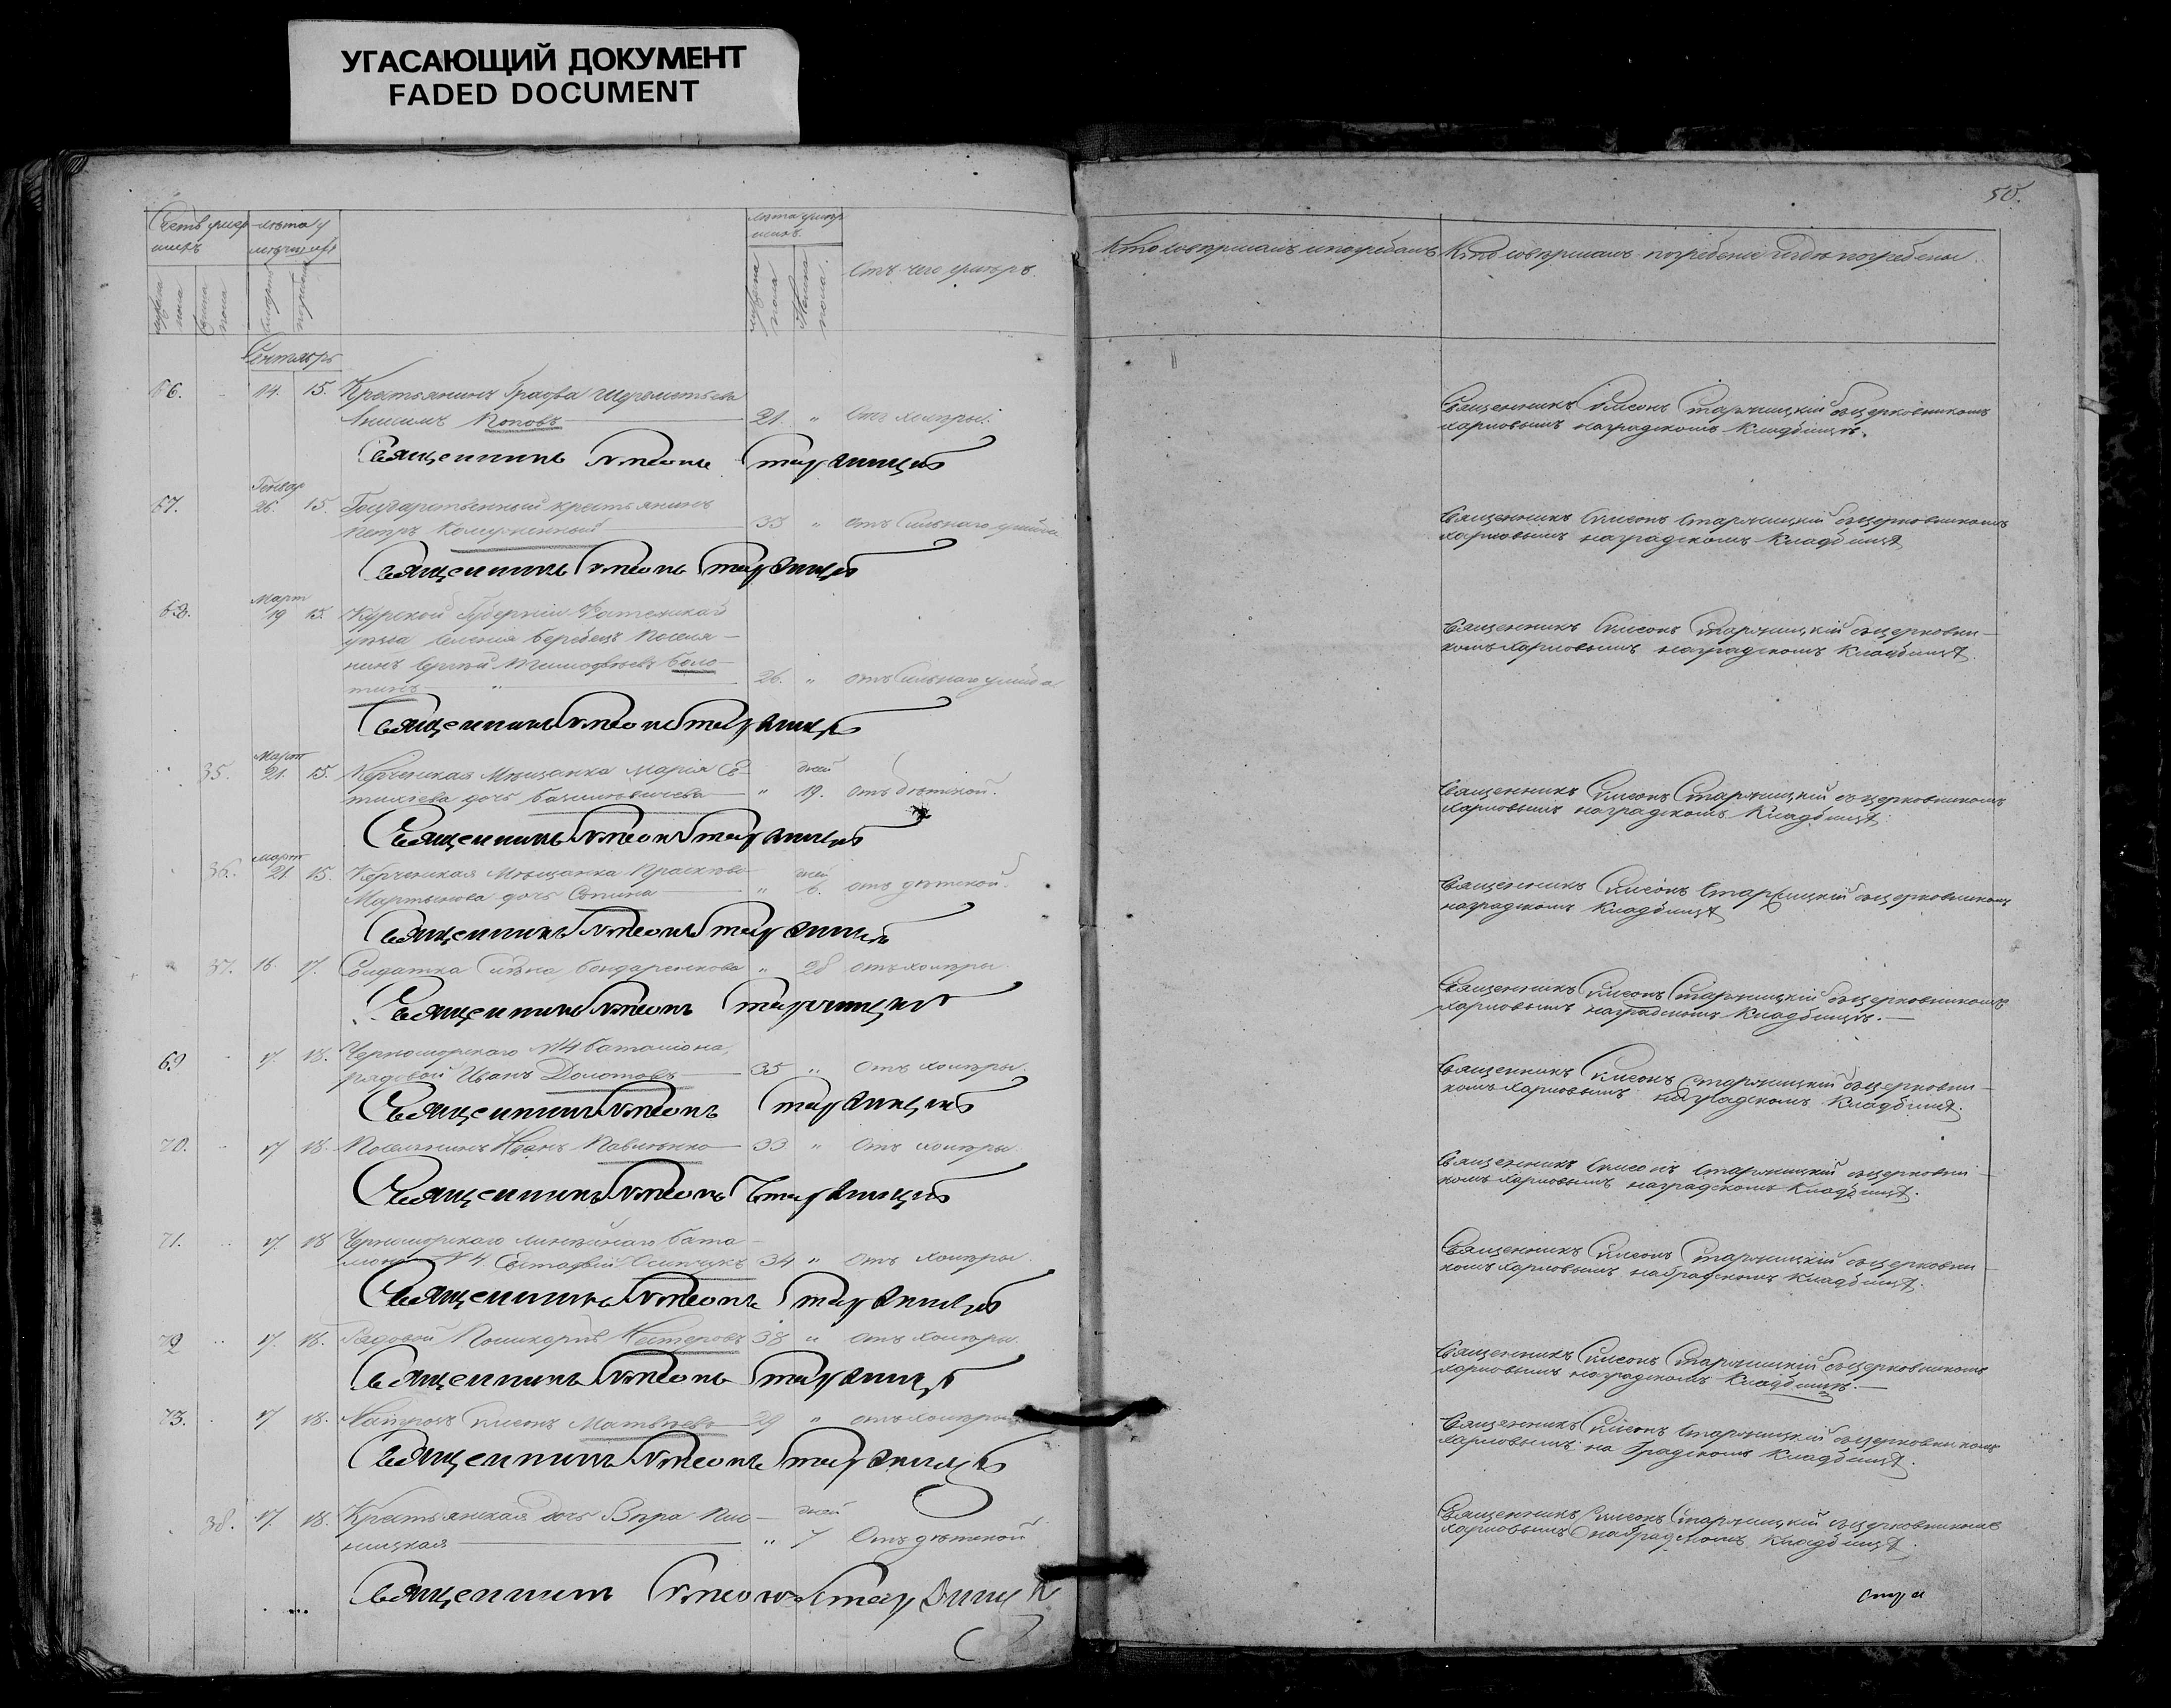 УГАСАЮЩИЙ ДОКУМЕНТ
FADED DOCUMENT
50.
лѣта умер
шихъ
мужеска пола
женска пола.
Отъ чего умеръ.
Кто совершалъ погребенie и гдѣ погребены
Сентябрь
66.
14.
15.
Крестьянинъ Графа Шереметьева
Анисимъ Поповъ
21.
"
Отъ холеры.
Священникъ Симеонъ Старжицкій
Священникъ Симеонъ Старжицкій съ церковникомъ
Харповымъ на градскомъ кладбищѣ.
67.
Генвар
26.
15.
Государственный крестьянинъ
Петръ
33
"
отъ сильнаго ушиба
Священникъ Симеонъ Старжицкій
Священникъ Симеонъ Старжицкій съ церковникомъ
Харповымъ на градскомъ кладбищѣ
68.
Март
19
15.
Курской Губерніи Фатежскаго
уѣзда селенія Поселя-
нинъ Сергѣй Тимофѣевъ Боло-
тинъ
26.
"
отъ сильнаго ушиба
Священникъ Симеонъ Старжицкій
Священникъ Симеонъ Старжицкій съ церковни-
комъ Харповымъ на градскомъ кладбищѣ.
35.
Март
21.
15.
Керченская Мѣщанка Марія Ев-
тихіева дочь
"
дней
19.
отъ дѣтской.
Священникъ Симеонъ Старжицкій
Священникъ Симеонъ Старжицкій съ церковникомъ
Харповымъ на градскомъ кладбищѣ
36.
Март
21
15.
Керченская Мѣщанка Прасковья
Мартынова дочь
"
дней
6.
отъ дѣтской.
Священникъ Симеонъ Старжицкій
Священникъ Симеонъ Старжицкій съ церковникомъ
на градскомъ кладбищѣ
37.
16.
17.
Солдатка Елена Бондаренкова
"
28
отъ холеры.
Священникъ Симеонъ Старжицкій
Священникъ Симеонъ Старжицкій съ церковникомъ
Харповымъ на градскомъ кладбищѣ.
69
17.
18.
Черноморскаго №4 баталіона,
рядовой Иванъ Долотовъ
35
"
Отъ холеры.
Священникъ Симеонъ Старжицкій
Священникъ Симеонъ Старжицкій съ церковни-
комъ Харповымъ на градскомъ кладбищѣ.
70.
17
18.
Поселянинъ Иванъ Павленко
33
"
Отъ холеры.
Священникъ Симеонъ Старжицкій
Священникъ Симеонъ Старжицкій съ церковни-
комъ Харповымъ на градскомъ кладбищѣ.
71.
17.
18
Черноморскаго линѣйнаго бата-
ліона №4. Евстафій Осипчукъ
34
"
Отъ холеры.
Священникъ Симеонъ Старжицкій
Священникъ Симеонъ Старжицкій съ церковни-
комъ Харповымъ на градскомъ кладбищѣ.
72
17.
18.
Рядовой Поликарпъ Нестеровъ
38
"
Отъ холеры.
Священникъ Симеонъ Старжицкій
Священникъ Симеонъ Старжицкій съ церковникомъ
Харповымъ на градскомъ кладбищѣ.
73.
17
18.
Матросъ Симеонъ Матвѣевъ
29
"
отъ холеры
Священникъ Симеонъ Старжицкій
Священникъ Симеонъ Старжицкій съ церковникомъ
Харповымъ на Градскомъ кладбищѣ.
38.
17.
18.
Крестьянская дочь Вѣра
"
дней
7
Отъ дѣтской
Священникъ Симеонъ Старжицкій
Священникъ Симеонъ Старжицкій съ церковникомъ
Харповымъ на градскомъ кладбищѣ